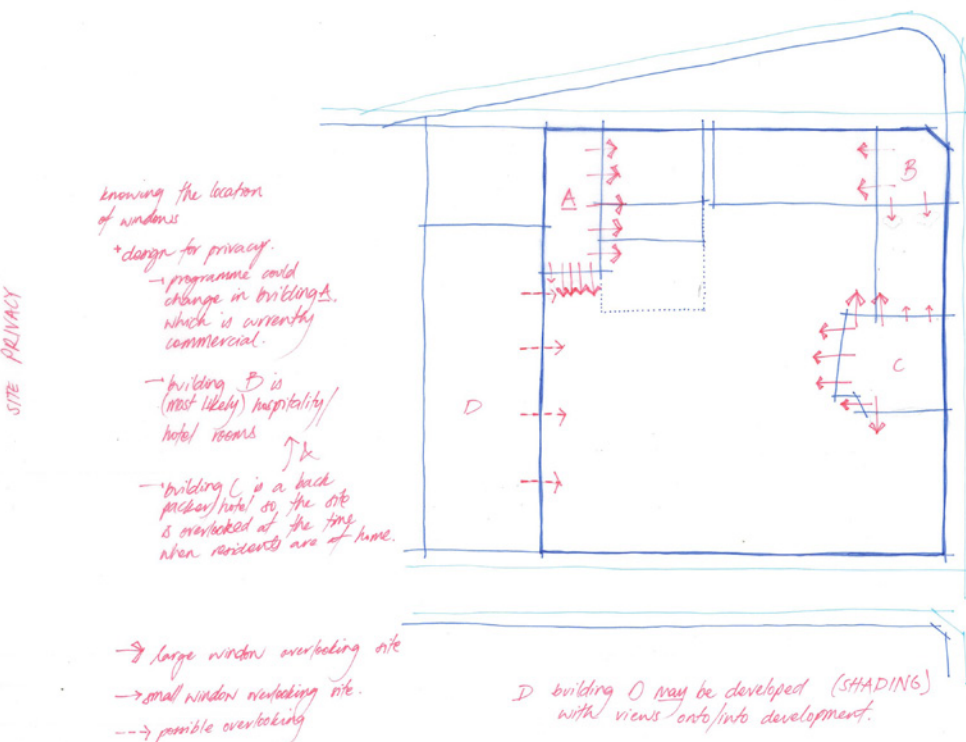 SITE PRIVACY
knowing the location
of windows
+ design for privacy.
→ programme could
change in building A.
which is currently
commercial.
→ building B is
(most likely) hospitality/
hotel rooms
&
→ building C is a back
packer/hotel so the site
is overlooked at the time
when residents are at home.
→ large window overlooking site
→ small window overlooking site.
---> possible overlooking
A
B
C
D
D building D may be developed (SHADING)
with views onto/into development.